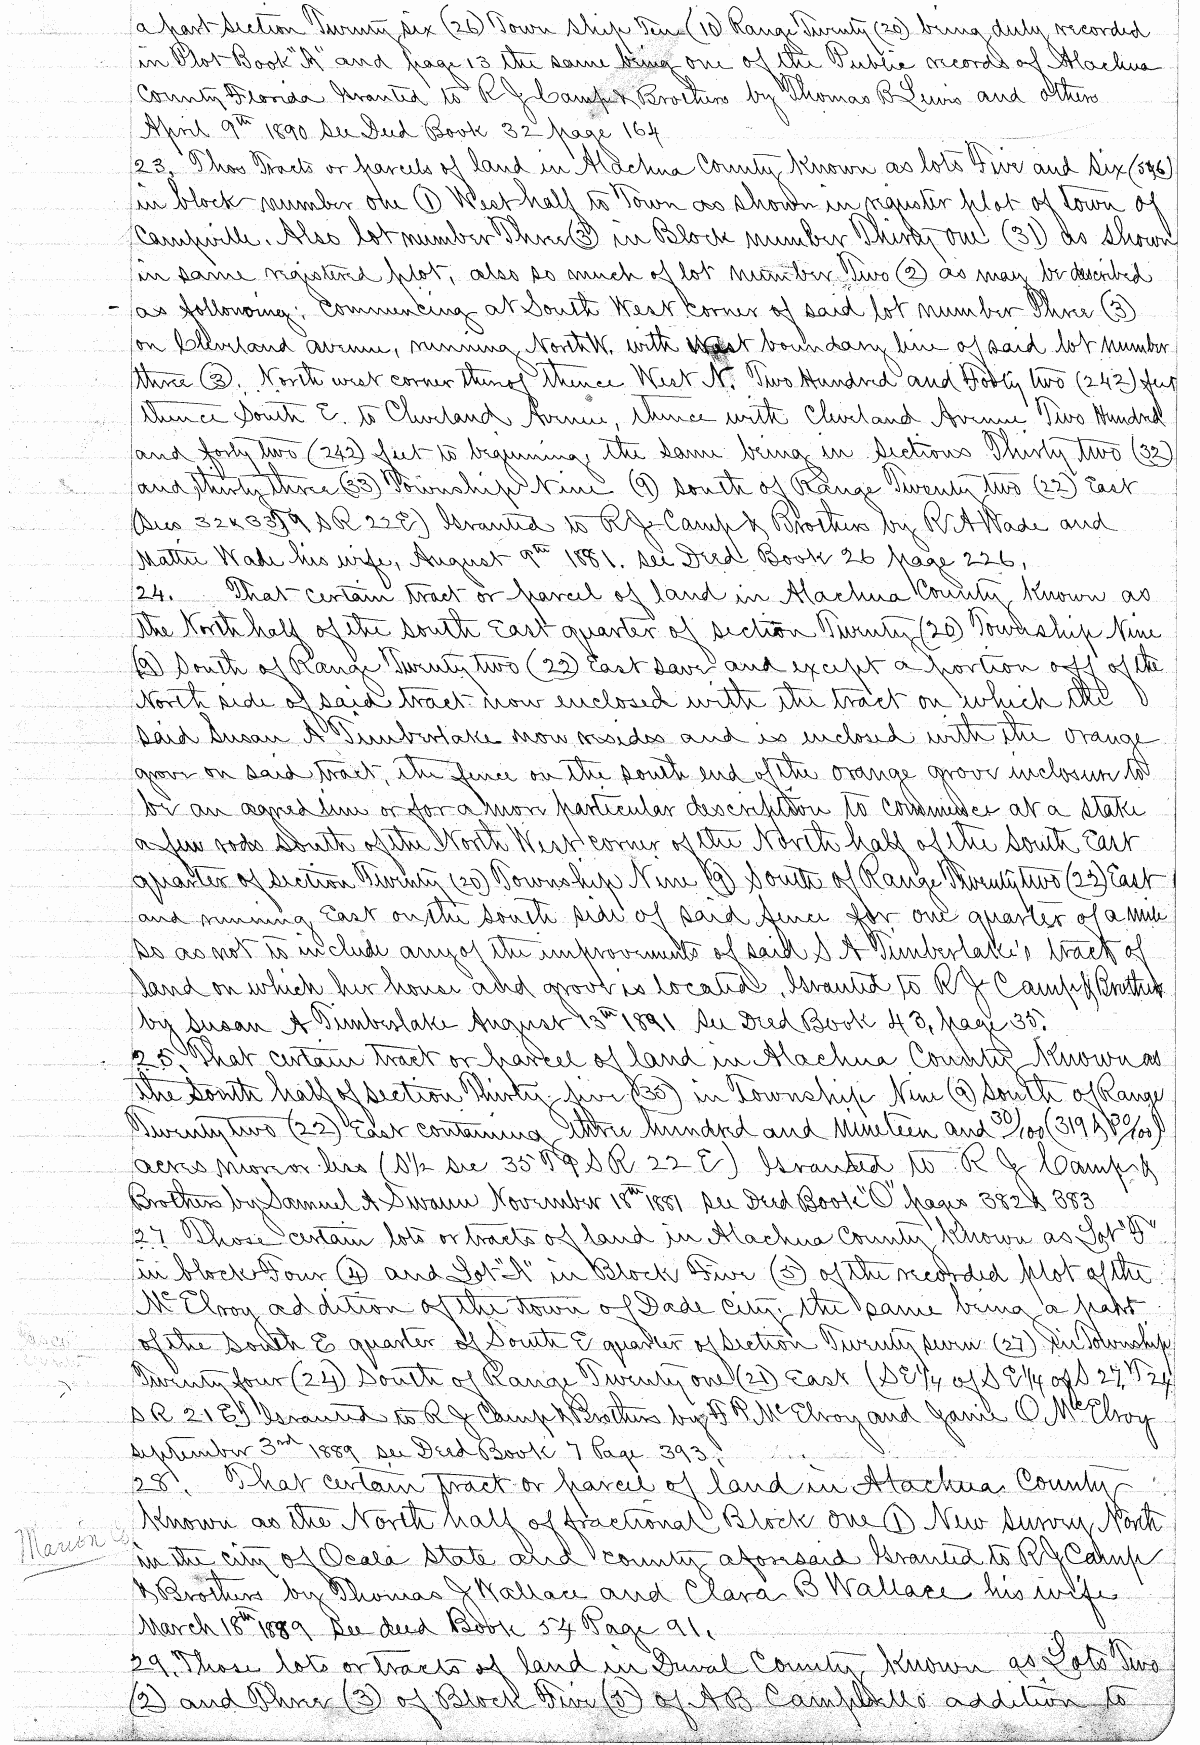 a part section Twenty six (26) Town ship Ten (10 Range Twenty (20) being duly recorded
in Plot Book "A" and page 13 the same being one of the Public records of Alachua
County Florida Granted to R J Camp & Brothers by Thomas B Lewis and others
April 9th 1890 See Deed Book 32 page 164
23. Thos Tracts or parcels of land in Alachua County Known as lots Five and Six (5&6)
in block number one (1) West half to Town as shown in register plot of town of
Campville. Also lot number Three (3) in Block number Thirty one (31) as shown
in same registered plot, also so much of lot number Two (2) as may be described
as following; commencing at South West corner of said lot number Three (3)
on Cleveland avenue, running North W. with West boundary line of said lot number
three (3). North west corner thereof thence West N. Two Hundred and Forty two (242) feet
thence South E. to Cleveland Avenue, thence with Cleveland Avenue Two Hundred
and forty two (242) feet to beginning, the same being in Sections Thirty two (32)
and thirty three (33) Township Nine (9) South of Range Twenty two (22) East
(Secs 32 & 33 T 9 S R 22 E) Granted to R J Camp & Brothers by R A Wade and
Mattie Wade his wife, August 9th 1881. See Deed Book 26 page 226,
24. That certain tract or parcel of land in Alachua County Known as
the North half of the South East quarter of section Twenty (20) Township Nine
(9) South of Range Twenty two (22) East save and except a portion off of the
North side of said tract now enclosed with the tract on which the
said Susan A Timberlake now resides and is inclosed with the orange
grove on said tract, the fence on the south end of the orange grove inclosure to
be an agreed line or for a more particular description to commence at a stake
a few rods South of the North West corner of the North half of the South East
quarter of section Twenty (20) Township Nine (9) South of Range Twenty two (22) East
and running East on the south side of said fence for one quarter of a mile
so as not to include any of the improvements of said S A Timberlake's tract of
land on which her house and grove is located, Granted to R J Camp & Brothers
by Susan A Timberlake August 13th 1891 See Deed Book 43, page 35.
25, That certain tract or parcel of land in Alachua County Known as
the South half of section Thirty five (35) in Township Nine (9) South of Range
Twenty two (22) East containing three hundred and nineteen and 30/100 (319 & 30/100)
acres more or less (S½ Sec 35 T 9 S R 22 E) Granted to R J Camp &
Brothers by Samuel A Swann November 18th 1881 See Deed Book "O" pages 382 & 383
27 Those certain lots or tracts of land in Alachua County Known as Lot "F"
in block Four (4) and Lot "A" in Block Five (5) of the recorded plot of the
McElroy addition of the town of Dade city; the same being a part
of the South E quarter of South E quarter of section Twenty seven (27) in Township
Twenty four (24) South of Range Twenty one (21) East (S E¼ of S E¼ of S 27, T 24
S R 21 E) Granted to R J Camp & Brothers by F P McElroy and Janie O McElroy
September 3rd 1889 see Deed Book 7 Page 393.
28. That certain tract or parcel of land in Alachua County
Known as the North half of fractional Block one (1) New Survey North
Marion
in the city of Ocala State and county aforesaid Granted to R J Camp
& Brothers by Thomas J Wallace and Clara B Wallace his wife
March 18th 1889 See deed Book 54 Page 91,
29. Those lots or tracts of land in Duval County Known as Lots Two
(2) and Three (3) of Block Five (5) of A B Campbells addition to